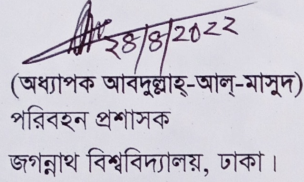 ২৪/৪/2022
(অধ্যাপক আবদুল্লাহ্-আল্-মাসুদ)
পরিবহন প্রশাসক
জগন্নাথ বিশ্ববিদ্যালয়, ঢাকা।